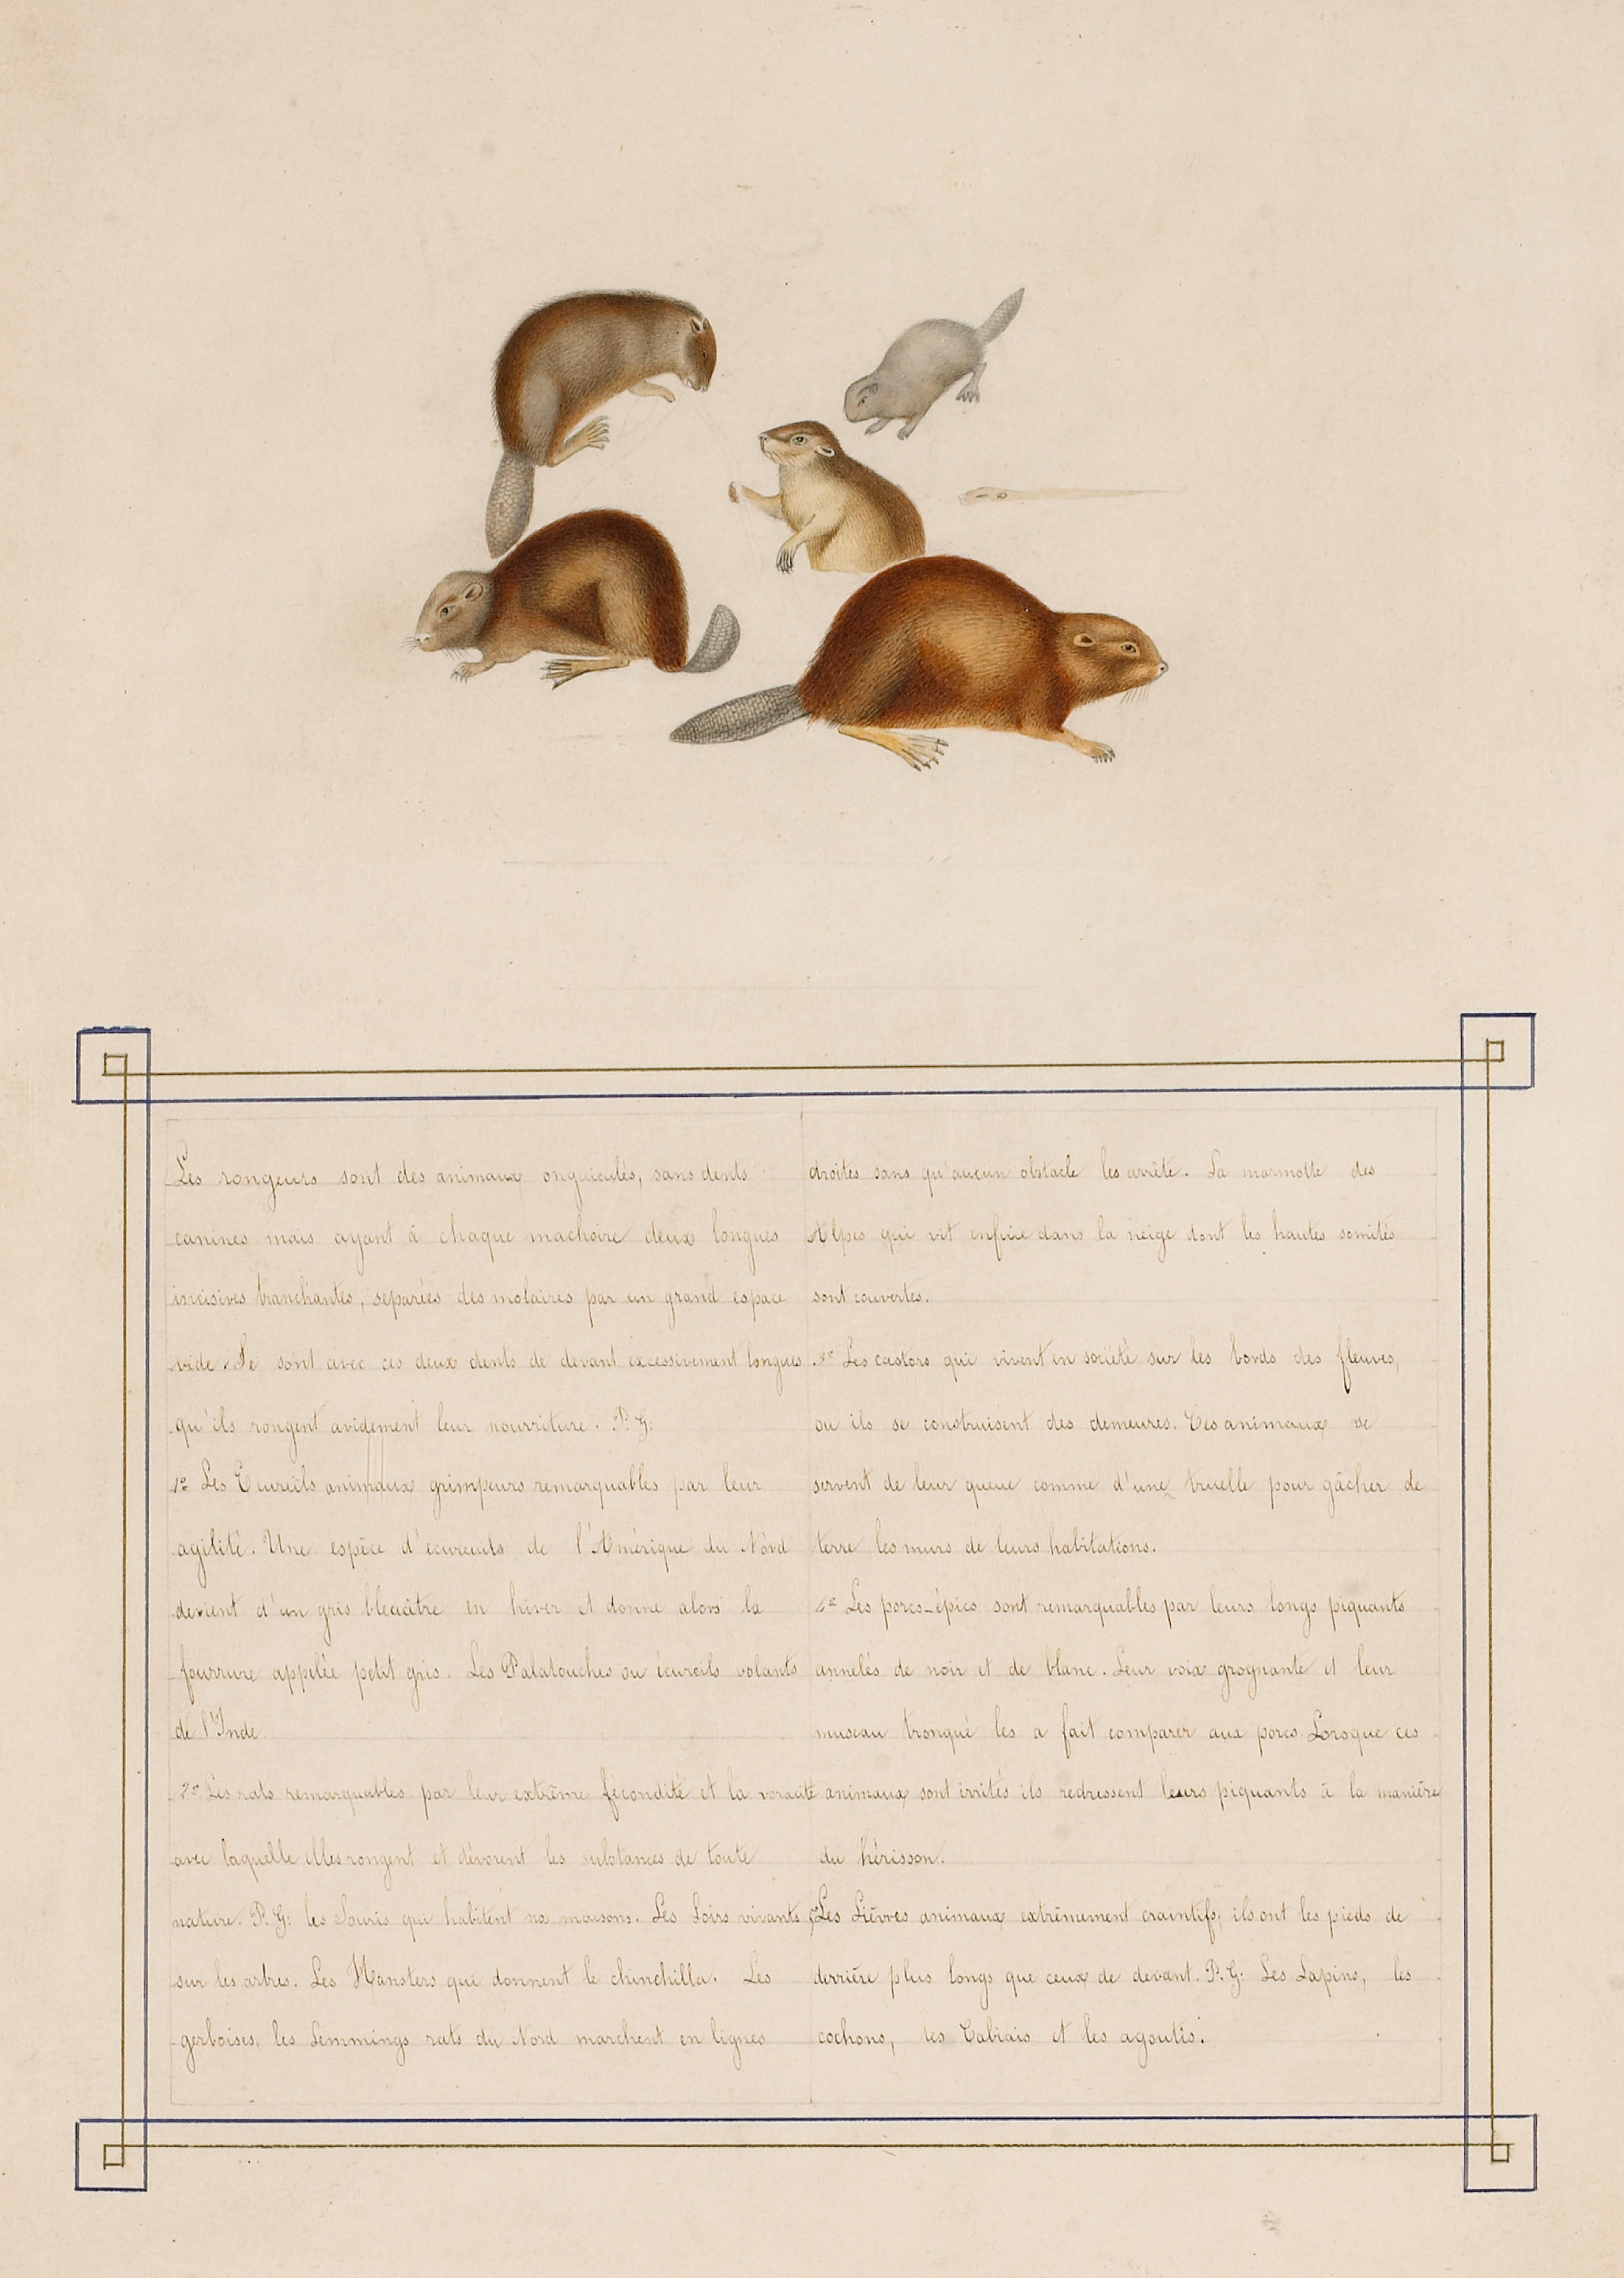 Les rongeurs sont des animaux onguiculés, sans dents
canines mais ayant à chaque machoire deux longues
incisives tranchantes, séparées des molaires par un grand espace
vide. Se sont avec ces deux dents de devant excessivement longues
qu'ils rongent avidement leur nourriture. P. G:
1º Les Ecureils animaux grimpeurs remarquables par leur
agilité. Une espèce d'écureuils de l'Amérique du Nord
devient d'un gris bleuâtre en hiver et donne alors la
fourrure appelée petit gris. Les Palatouches ou écureils volants
de l'Inde.
2º Les rats remarquables par leur extrême fécondité et la voracité
avec laquelle elles rongent et dévorent les substances de toute
nature. P. G: les Souris qui habitent nos maisons. Les Loirs vivants
sur les arbres. Les Hamsters qui donnent le chinchilla. Les
gerboises, les Lemmings rats du Nord marchent en lignes
droites sans qu'aucun obstacle les arrête. La marmotte des
Alpes qui vit enfuie dans la neige dont les hautes somités
sont couvertes.
3º Les castors qui vivent en société sur les bords des fleuves,
ou ils se construisent des demeures. Ces animaux se
servent de leur queue comme d'une truelle pour gâcher de
terre les murs de leurs habitations.
4º Les porcs-épics sont remarquables par leurs longs piquants
annelés de noir et de blanc. Leur voix grognante et leur
museau tronqué les a fait comparer aux porcs. Lorsque ces
animaux sont irrités ils redressent leurs piquants à la manière
du hérisson.
5 Les Lièvres animaux extrêmement craintifs; ils ont les pieds de
derrière plus longs que ceux de devant. P. G: Les Lapins, les
cochons, les Cabiais et les agoutis.